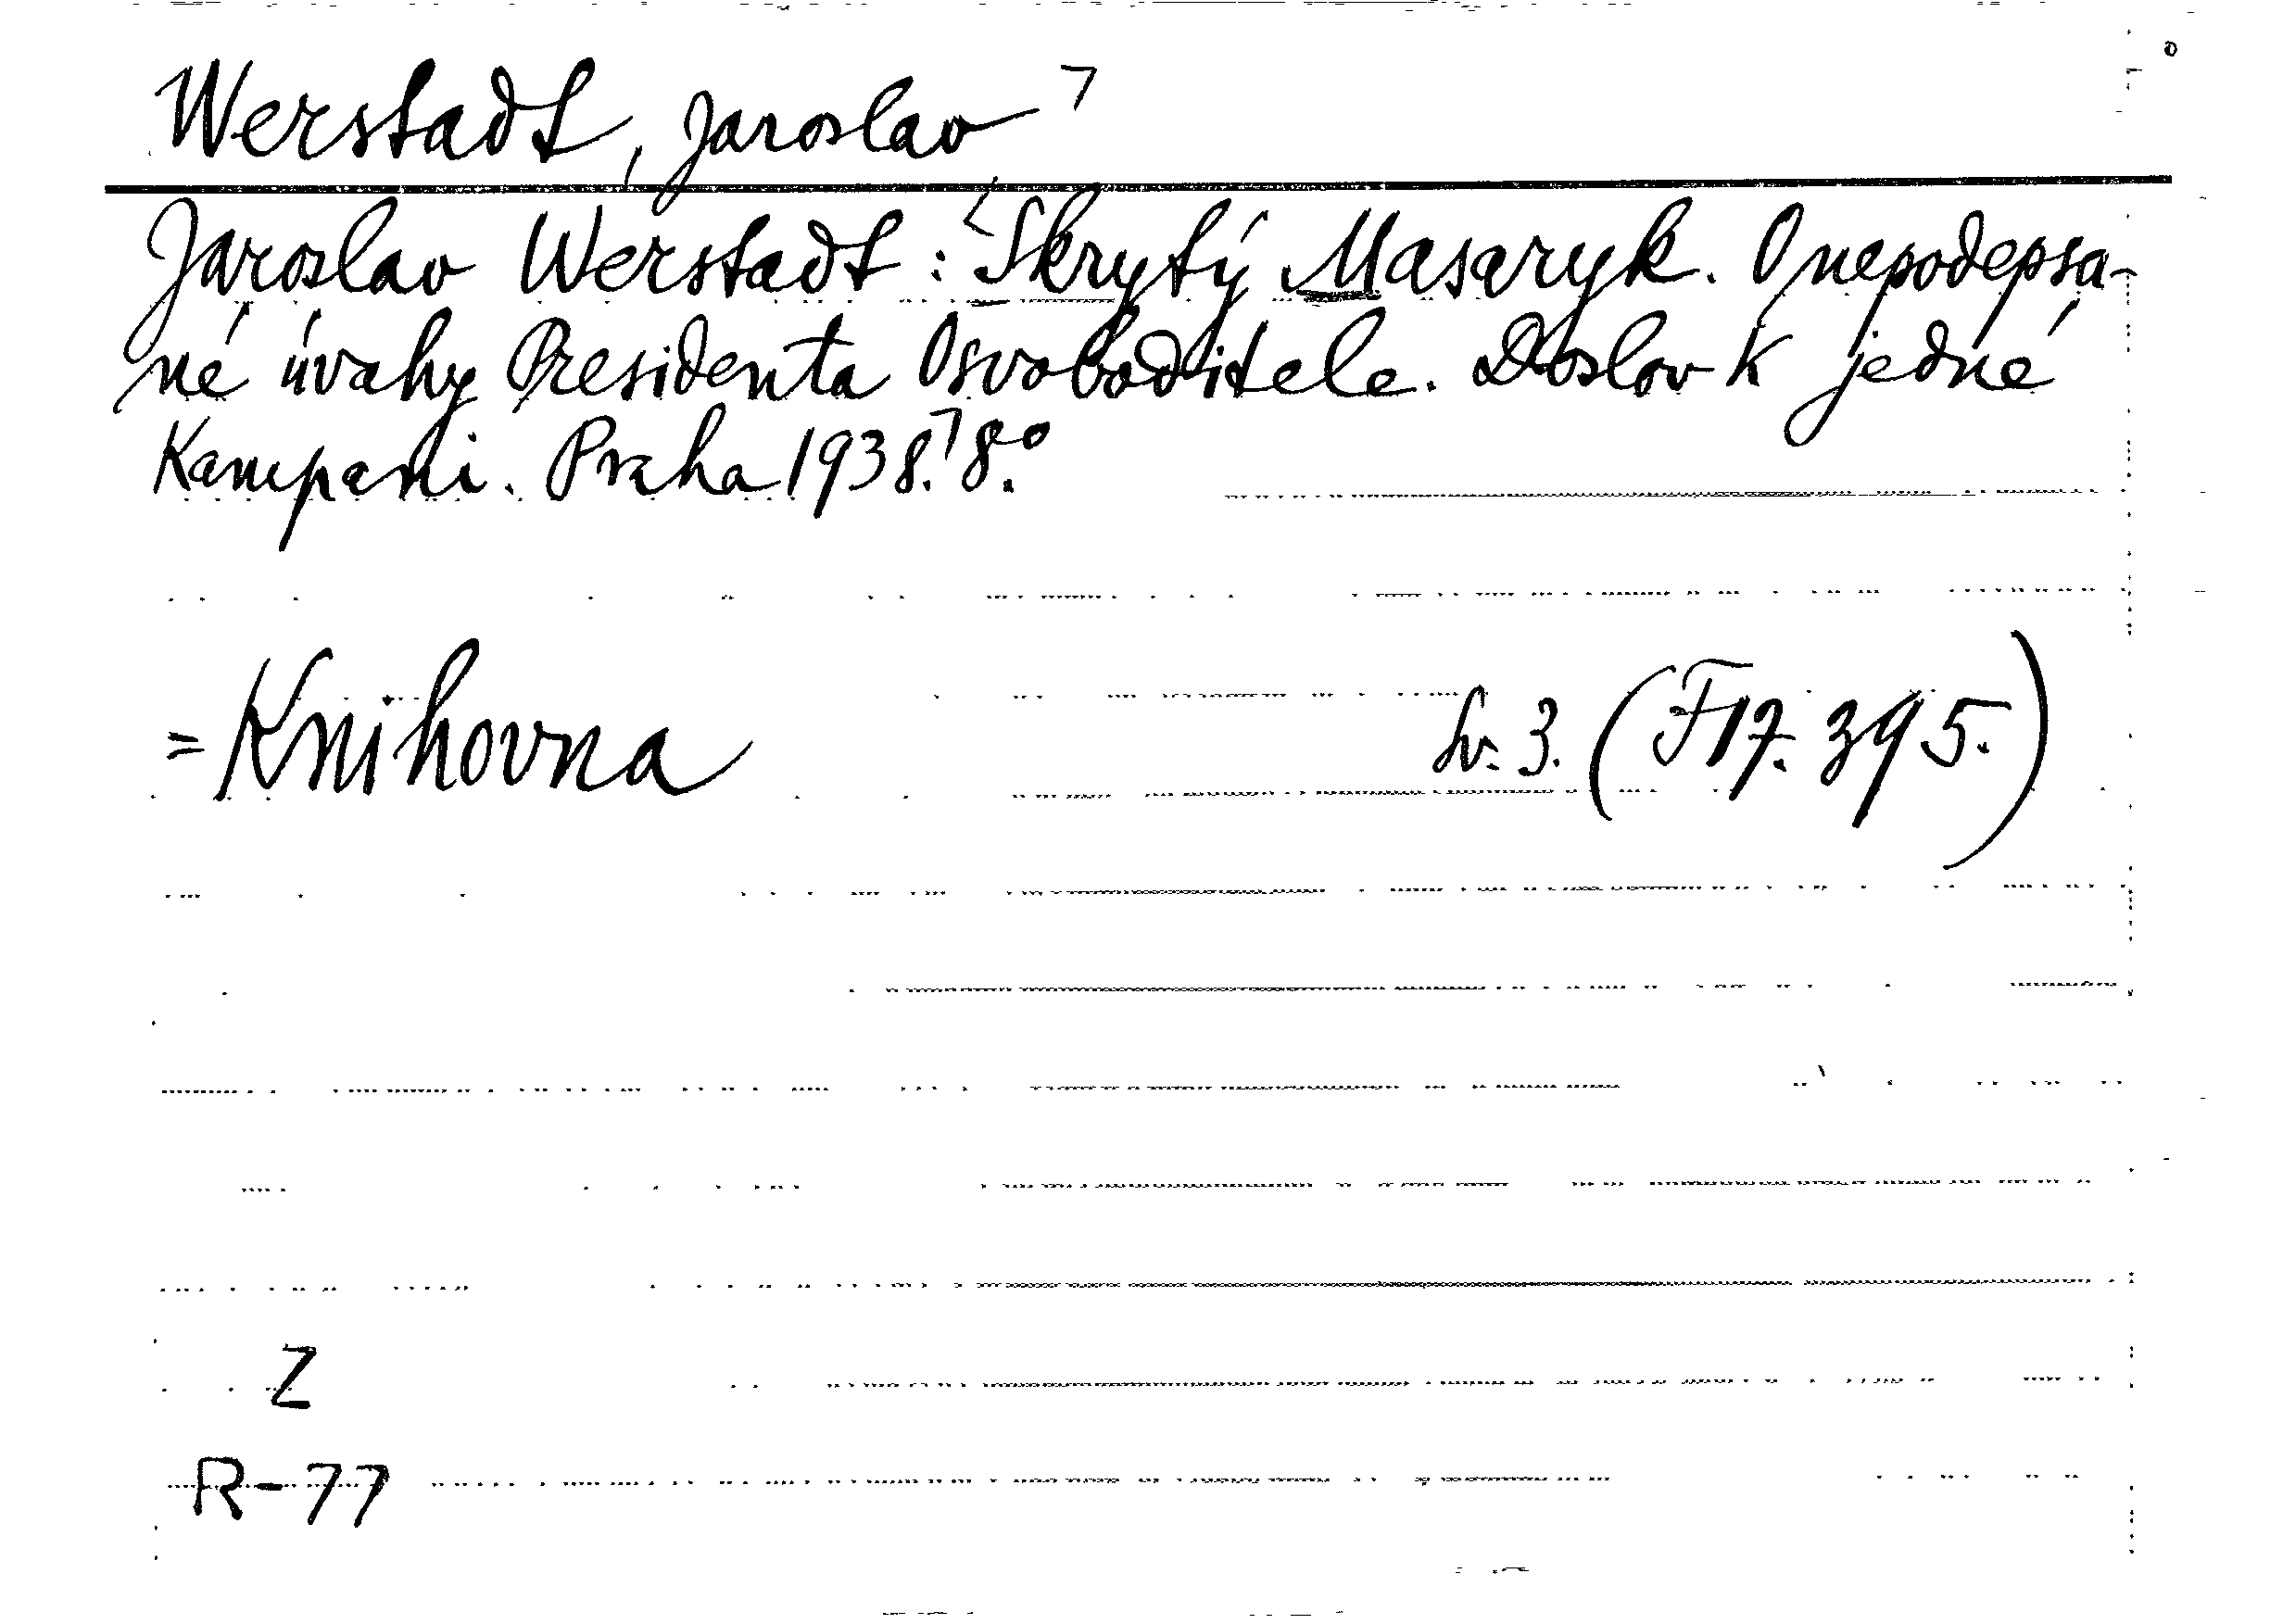 Werstadt, Jaroslav
Jaroslav Werstadt: Skrytý Masaryk. O nepodepsa-
né úvahy Presidenta Osvoboditele. Doslov k jedné
Kampani. Praha 1938. 8.°
= Knihovna Sv. 3. (F 17. 395.)
Z
R-77